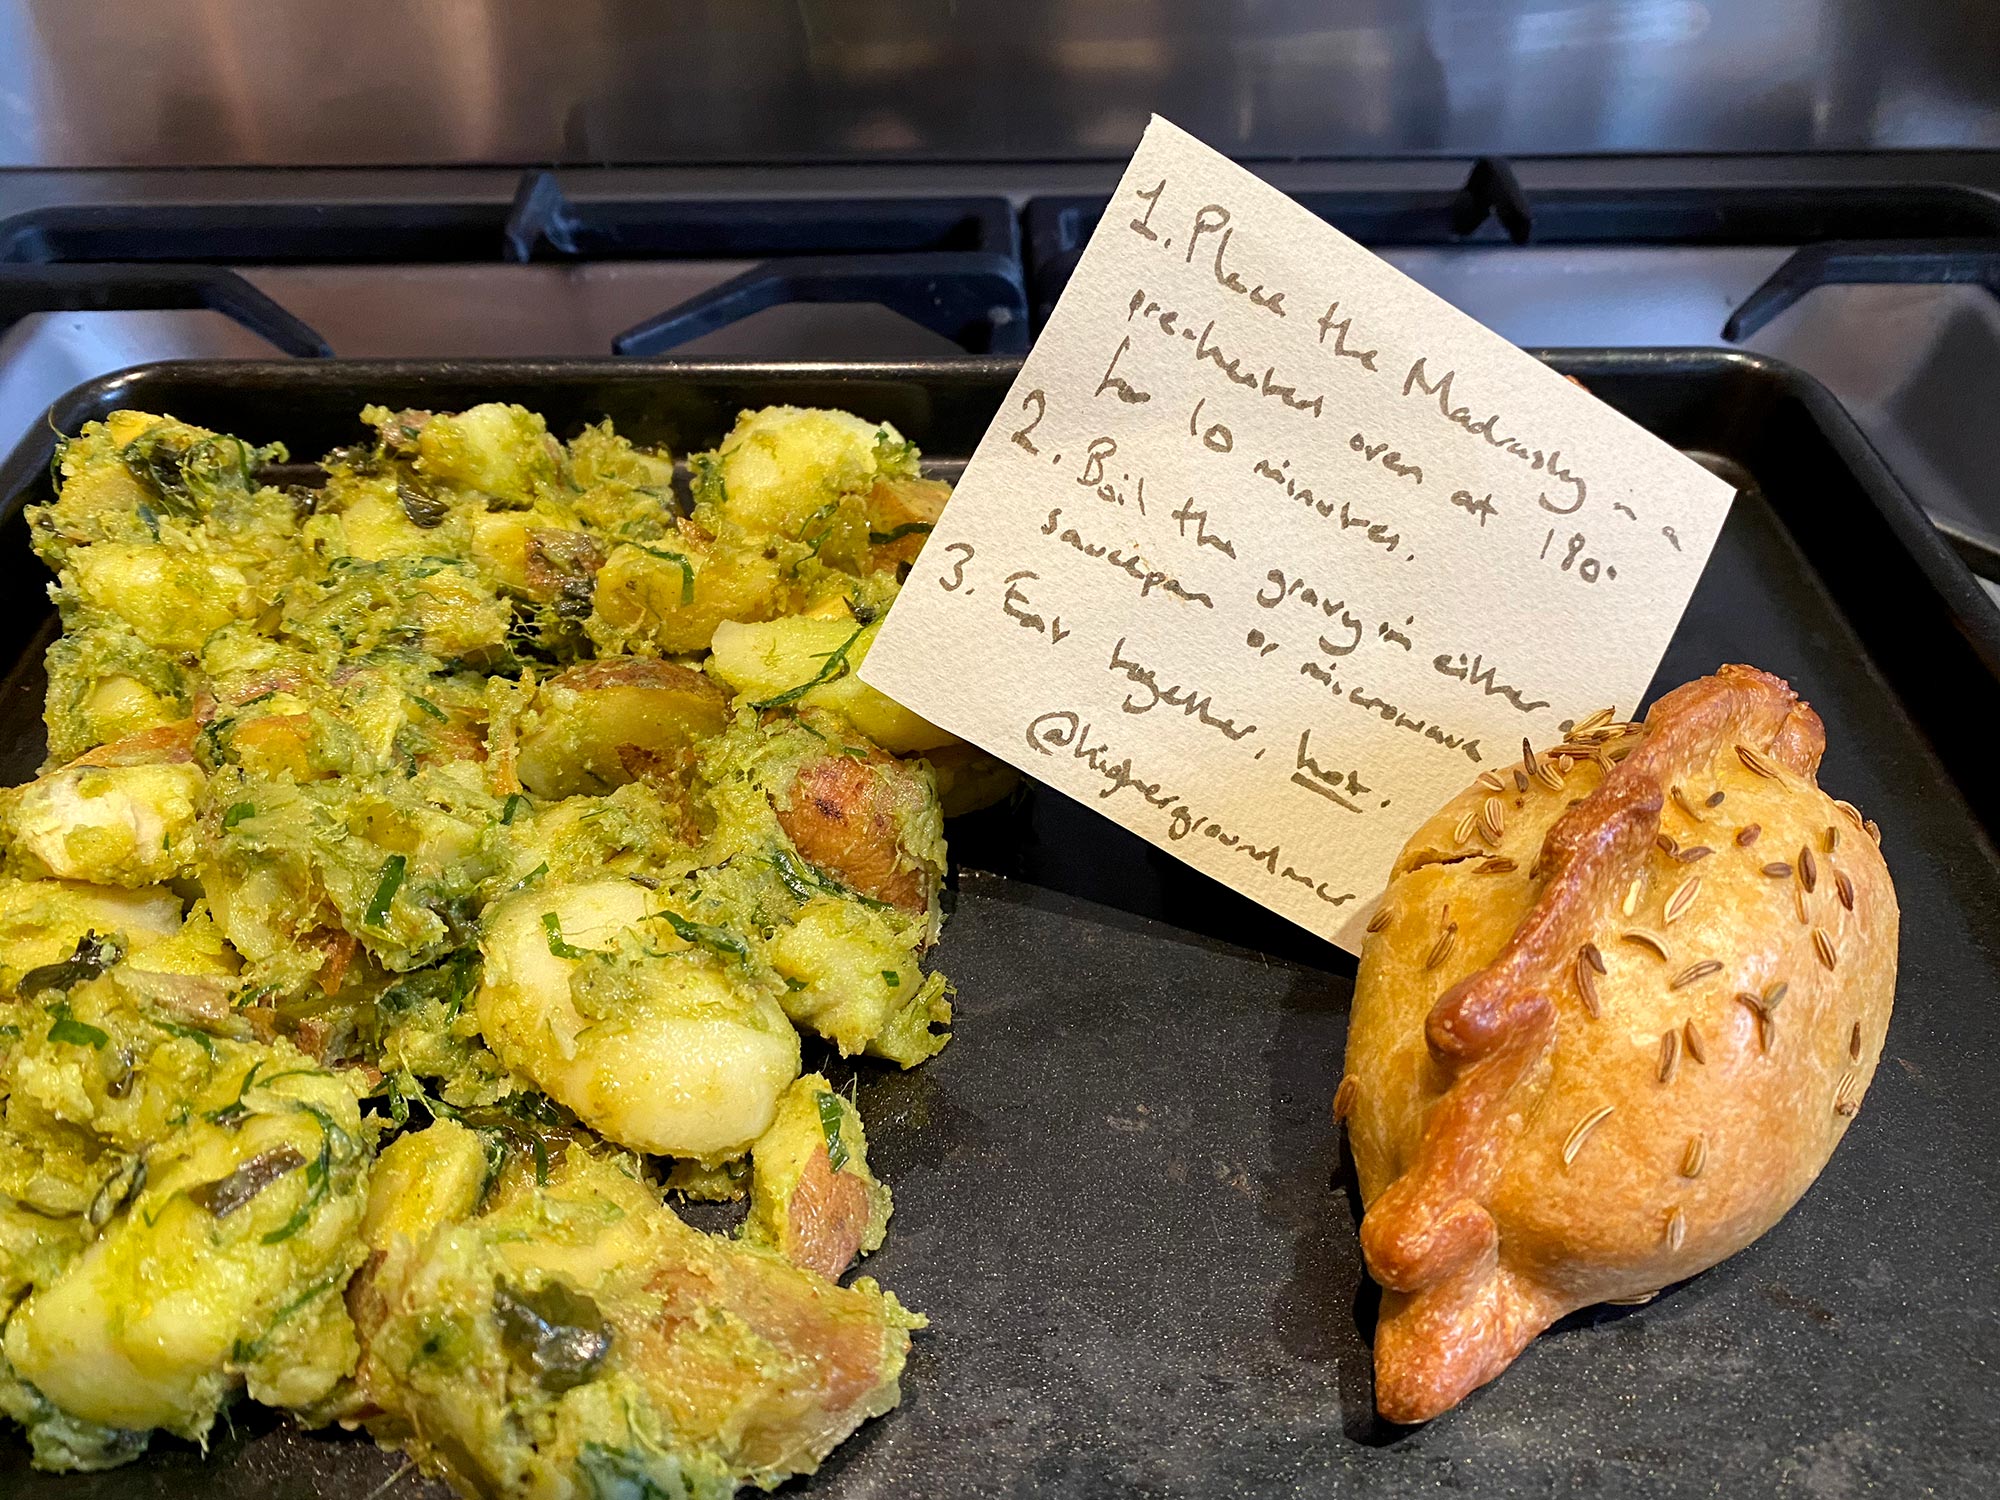 1. Place the Madrasty in a
pre-heated oven at 180°
for 10 minutes.
2. Boil the gravy in either a
saucepan or microwave.
3. Eat together, hot.
@highergroundmcr